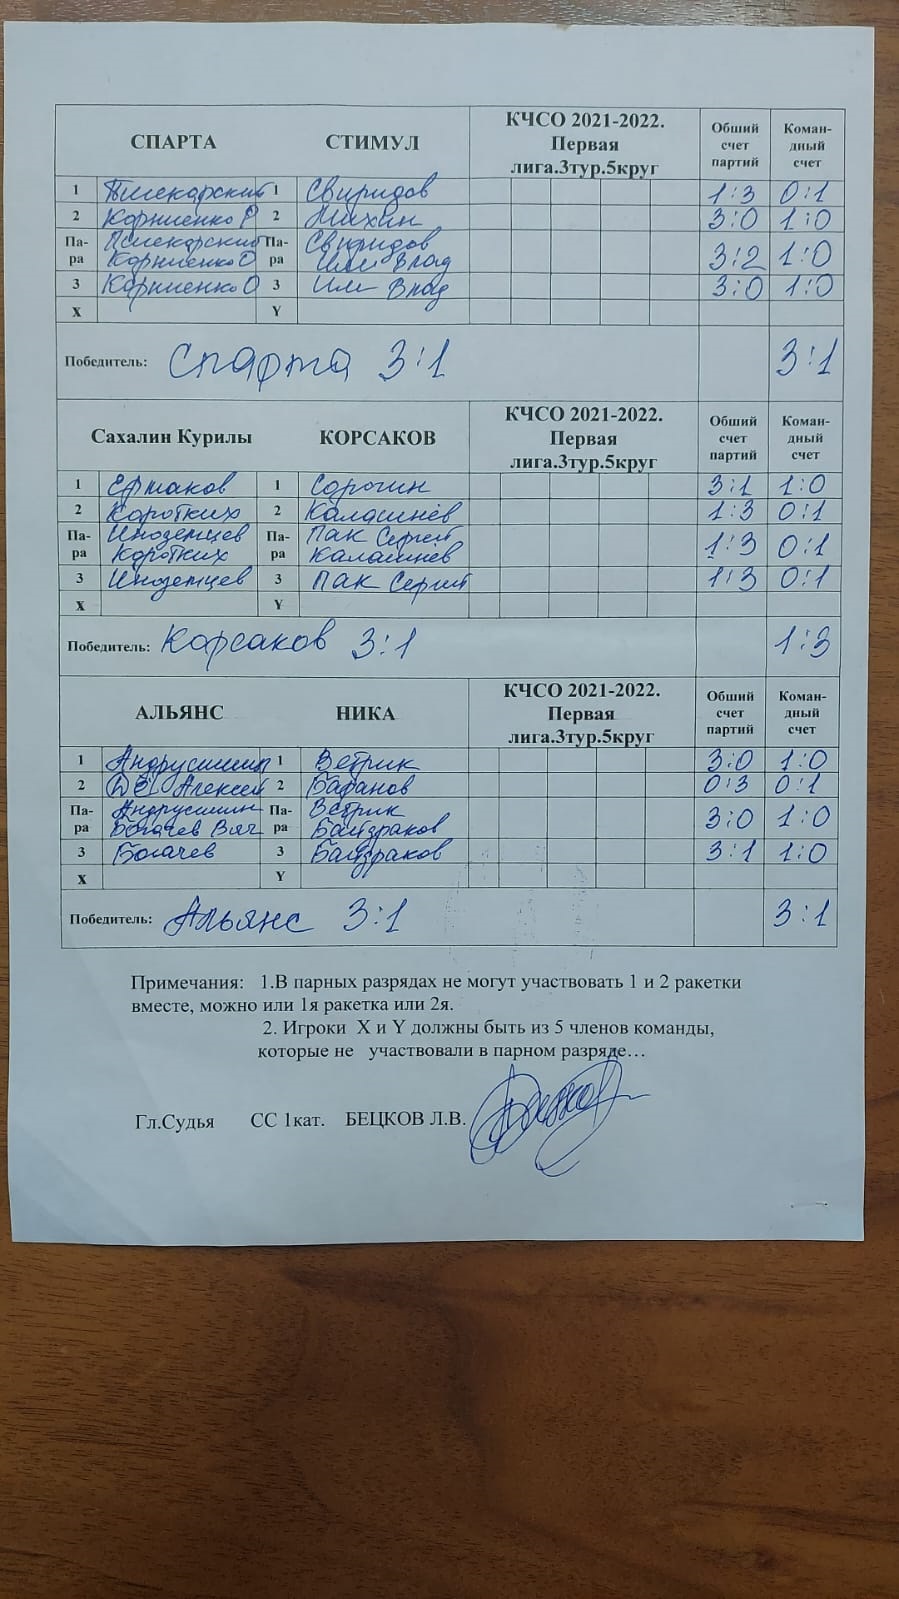 СПАРТА СТИМУЛ КЧСО 2021-2022. Первая лига.3тур.5круг Обший счет партий Коман-дный счет
1 Писекарский 1 Свиридов 1:3 0:1
2 Корниенко Р 2 3:0 1:0
Па-ра Писекарский Па-ра Свиридов 3:2 1:0
Корниенко О Им Влад
3 Корниенко О 3 Им Влад 3:0 1:0
X Y
Победитель: Спарта 3:1 3:1
Сахалин Курилы КОРСАКОВ КЧСО 2021-2022. Первая лига.3тур.5круг Обший счет партий Коман-дный счет
1 Ермаков 1 Сорочин 3:1 1:0
2 Коротких 2 Калашнёв 1:3 0:1
Па-ра Иноземцев Па-ра Пак Сергей 1:3 0:1
Коротких Калашнев
3 Иноземцев 3 Пак Сергей 1:3 0:1
X Y
Победитель: Корсаков 3:1 1:3
АЛЬЯНС НИКА КЧСО 2021-2022. Первая лига.3тур.5круг Обший счет партий Коман-дный счет
1 Андрусишин 1 Ветрик 3:0 1:0
2 Алексей 2 Бабанов 0:3 0:1
Па-ра Андрусишин Па-ра Ветрик 3:0 1:0
Богачев Вяч Байдраков
3 Богачев 3 Байдраков 3:1 1:0
X Y
Победитель: Альянс 3:1 3:1
Примечания: 1.В парных разрядах не могут участвовать 1 и 2 ракетки
вместе, можно или 1я ракетка или 2я.
2. Игроки X и Y должны быть из 5 членов команды,
которые не участвовали в парном разряде…
Гл.Судья СС 1кат. БЕЦКОВ Л.В.